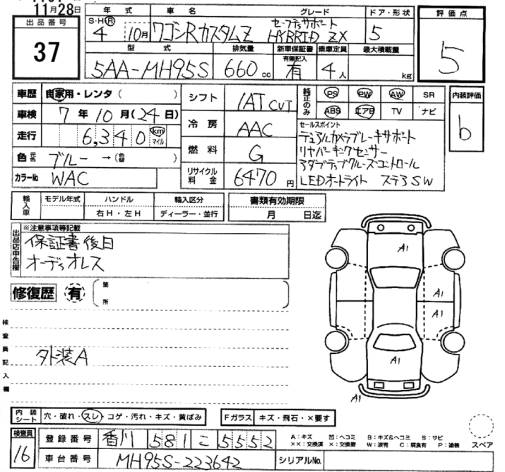 11月28日
出品番号
37
年式
S・H・R
4 10月
車名
グレード
ワゴンRカスタムZ セーフティサポート HYBRID ZX
ドア・形状
5
評価点
5
型式
5AA-MH95S
排気量
660cc
新車保証書
有
乗車定員
4人
最大積載量
kg
車歴 自家用・レンタ( )
車検 7年10月(24日)
走行 6,340 km マイル
色 ブルー→(色替)
カラーNo WAC
シフト 1AT CVT
冷房 AAC
燃料 G
リサイクル料金 6470円
PS PW AW SR
ABS エアB TV ナビ
内装評価
b
セールスポイント
デュアルカメラブレーキサポート
リヤパーキングセンサー
アダプティブクルーズコントロール
LEDオートライト ステアSW
輸入車 モデル年式 ハンドル 輸入区分 書類有効期限
右H・左H ディーラー・並行 月 日迄
出品店申告欄
※注意事項等記載
保証書後日
オーディオレス
修復歴 有 箇所
検査員記入欄
外装A
A1
A1
A1
A1
A1
内装シート 穴・破れ・スレ・コゲ・汚れ・キズ・黄ばみ
Fガラス キズ・飛石・×要す
検査員
16
登録番号 香川 581 こ 5552
車台番号 MH95S-223642
シリアルNo.
スペア